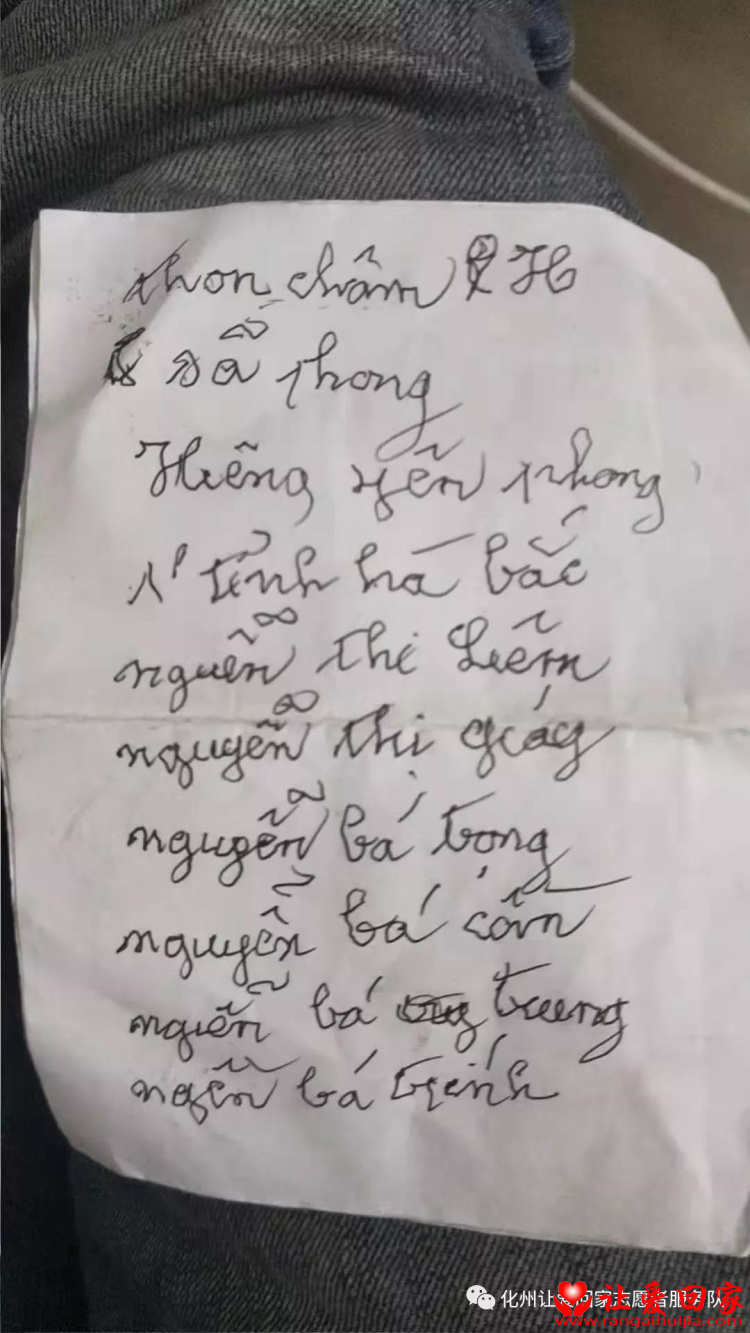 thon châm H
sẫ phong
Hiêng yên phong
tỉnh há bắc
nguễn thị Liễm
nguyễn thị giáy
nguyễn bá tong
nguyễn bá cồn
nguễn bá trung
ngễn bá trính
化州让爱回家志愿者服务队
让爱回家
www.rangaihuijia.com